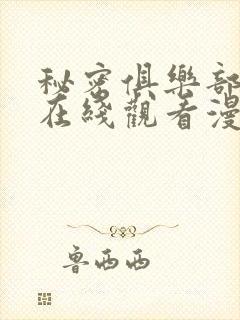 秘密俱樂部
在綫觀看漫
魯西西